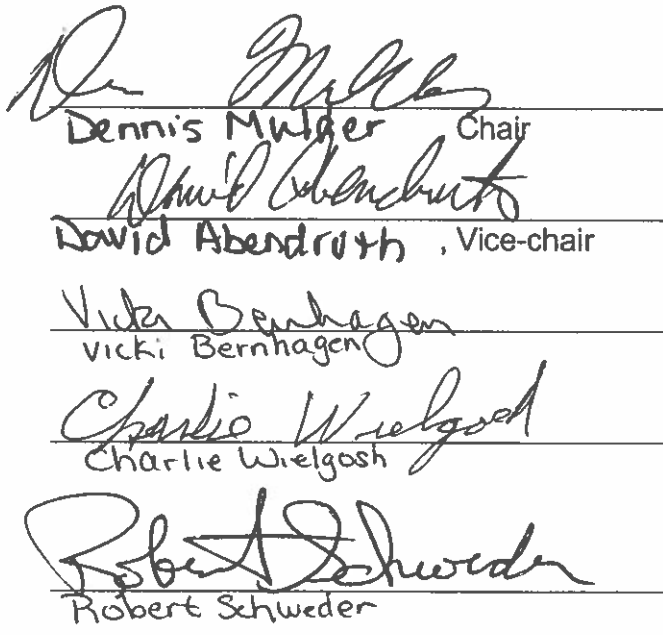 Dennis Mulder Chair
David Abendruth
David Abendruth , Vice-chair
Vicki Bernhagen
Vicki Bernhagen
Charlie Wielgosh
Charlie Wielgosh
Robert Schweder
Robert Schweder